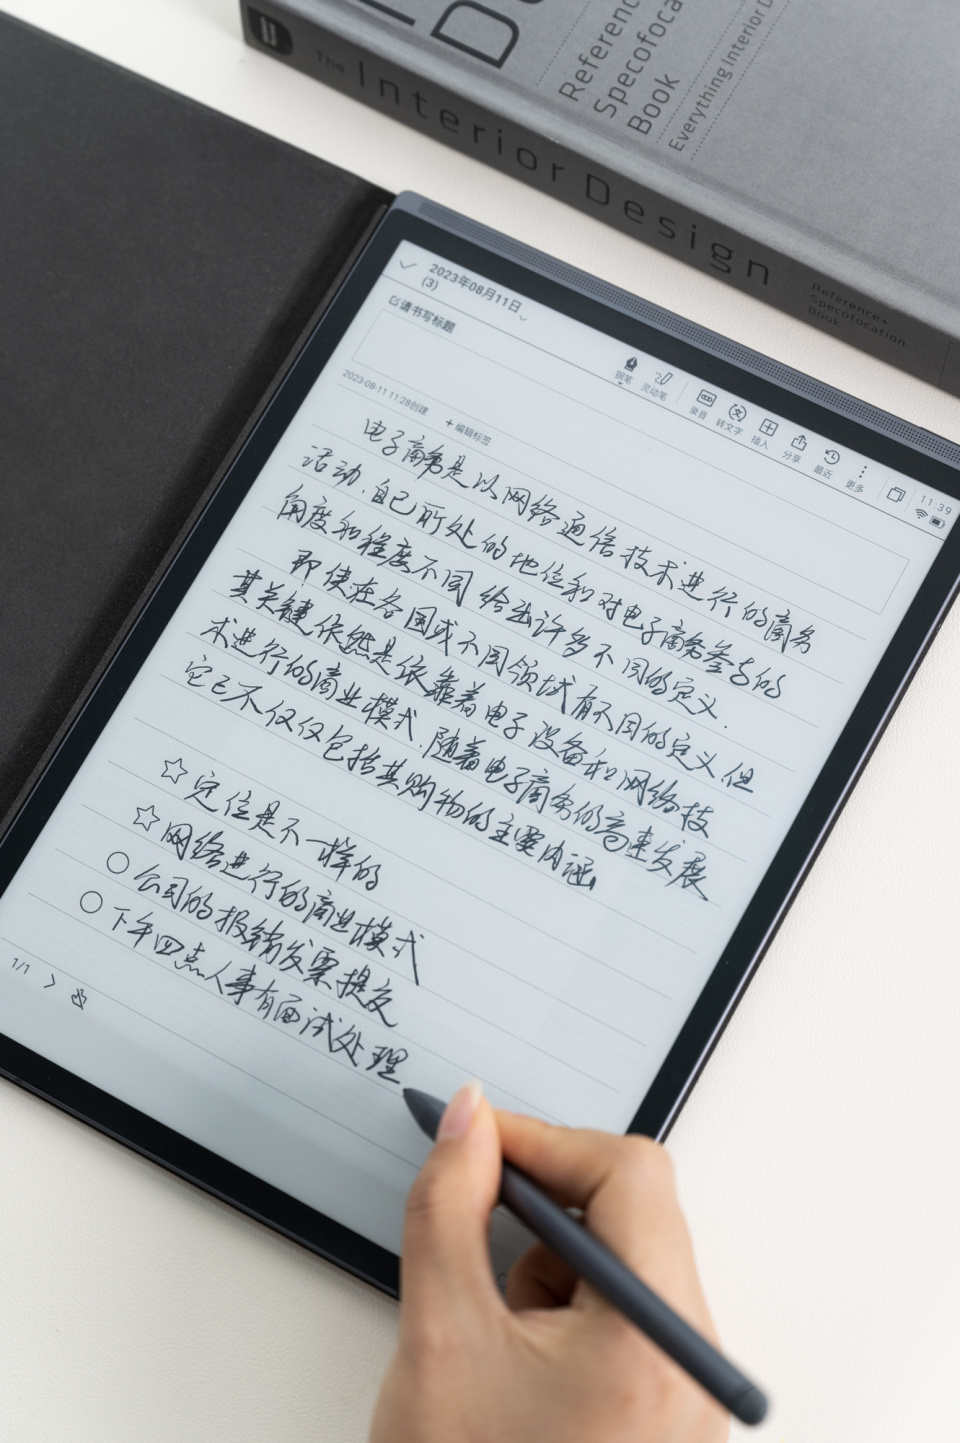 Referenc
Specofoca
Book
Everything Interior D
The Interior Design
Reference+
Specofocation
Book
2023年08月11日
(3)
请书写标题
钢笔 灵动笔 录音 转文字 插入 分享 最近 更多
11:39
2023-08-11 11:28创建
+ 编辑标签
电子商务是以网络通信技术进行的商务
活动.自己所处的地位和对电子商务参与的
角度和程度不同给出许多不同的定义.
即使在各国或不同领域有不同的定义但
其关键依然是依靠着电子设备和网络技
术进行的商业模式.随着电子商务的高速发展
它已不仅仅包括其购物的主要内涵
☆定位是不一样的
☆网络进行的商业模式
○公司的报销发票提交
○下午四点人事有面试处理
1/1